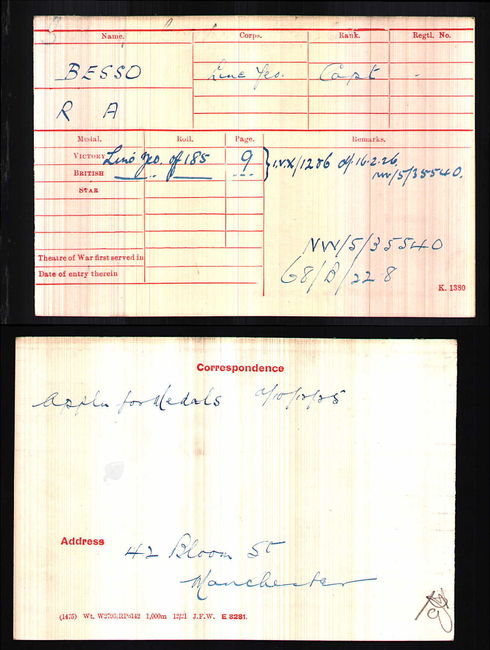 Name. Corps. Rank. Regtl. No.
BESSO Linc Yeo. Capt -
R A
Medal. Roll. Page. Remarks.
VICTORY Linc Yeo. Off 185 9 } I.V.X/1286 of 16.2.26.
BRITISH —— " —— --- NW/5/35540.
STAR
NW/5/35540
68/B/228
Theatre of War first served in
Date of entry therein
K. 1380
Correspondence
Appln for Medals
Address 42 Bloom St
Manchester
(1475) Wt. 1,000m 12/21 J.F.W. E 8281.